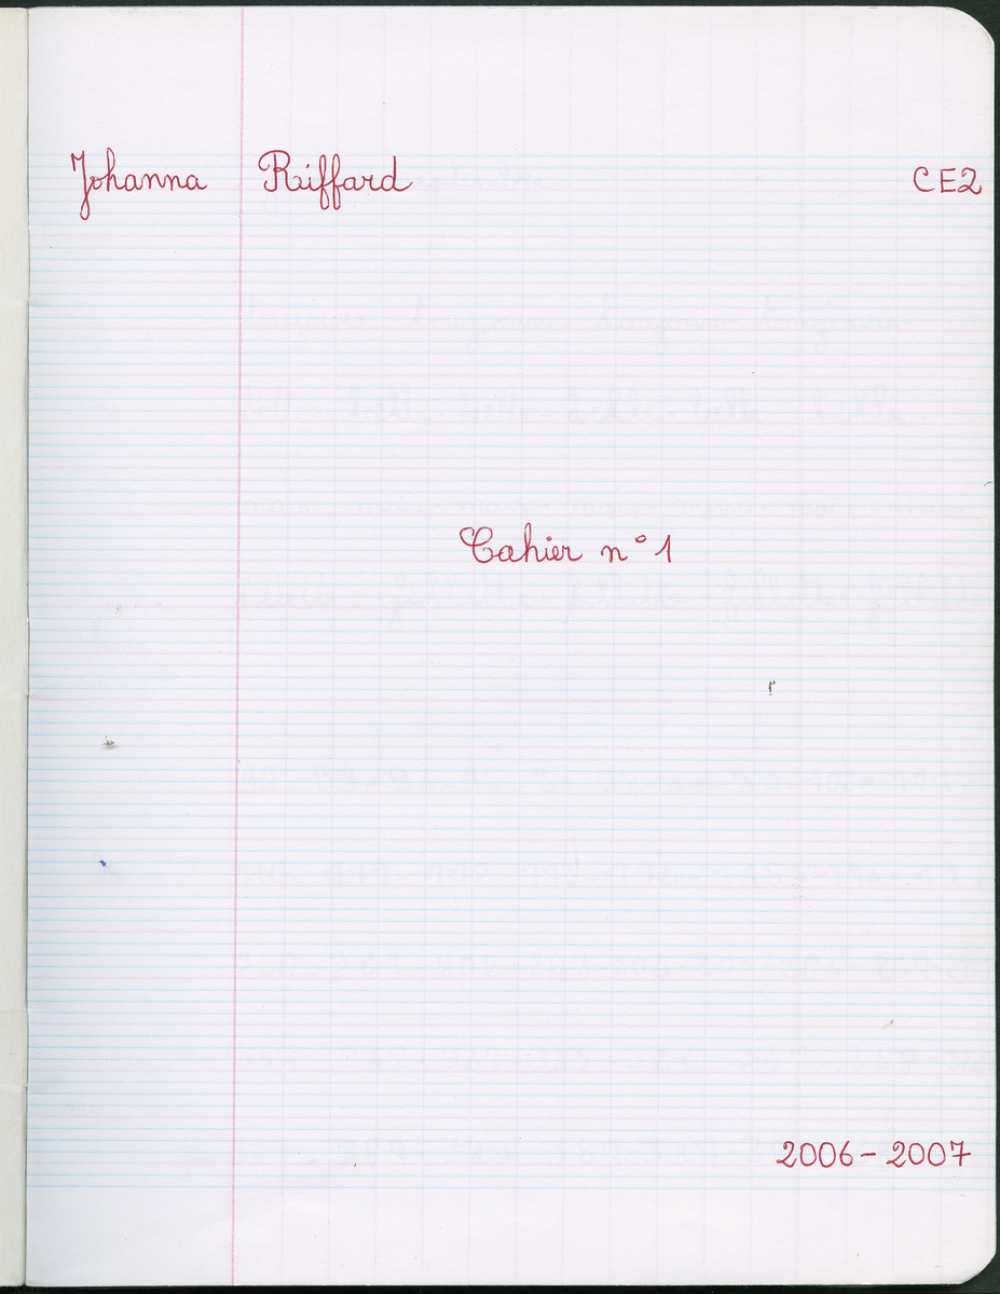 Johanna Riffard CE2
Cahier n° 1
2006-2007